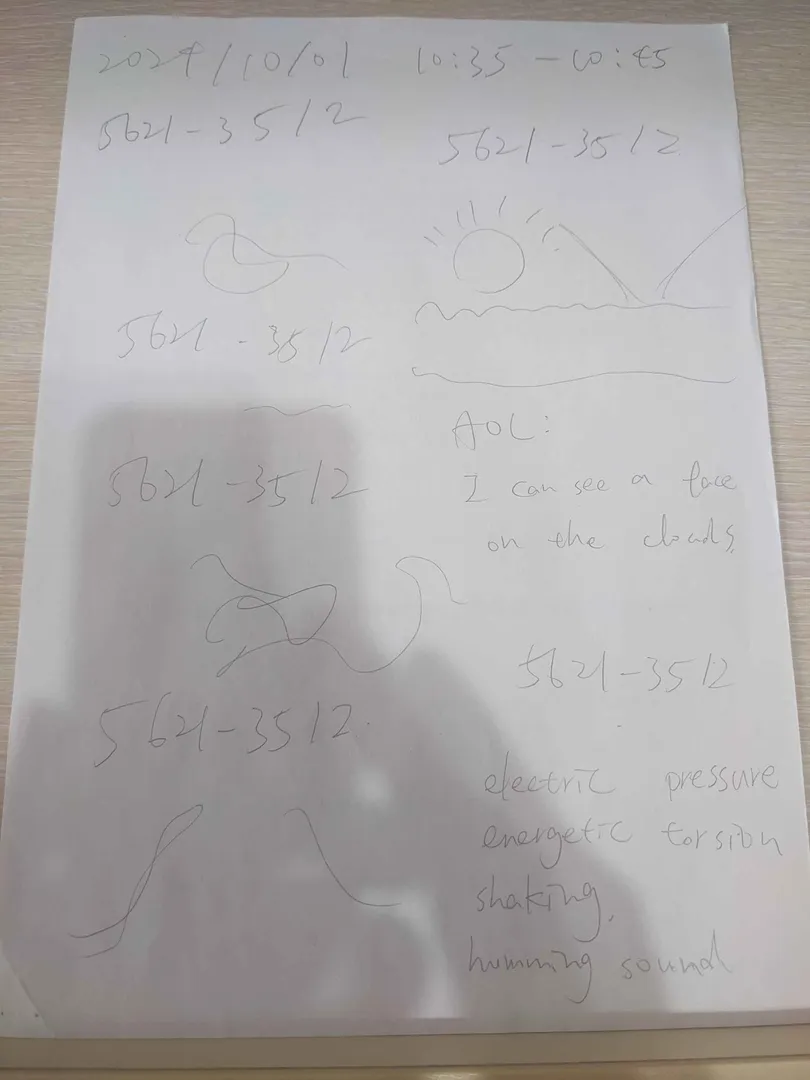 2024/10/01 10:35 - 10:45
5621-3512
5621-3512
5621-3512
5621-3512
5621-3512
AOL:
I can see a face
on the clouds,
5621-3512
electric pressure
energetic torsion
shaking,
humming sound